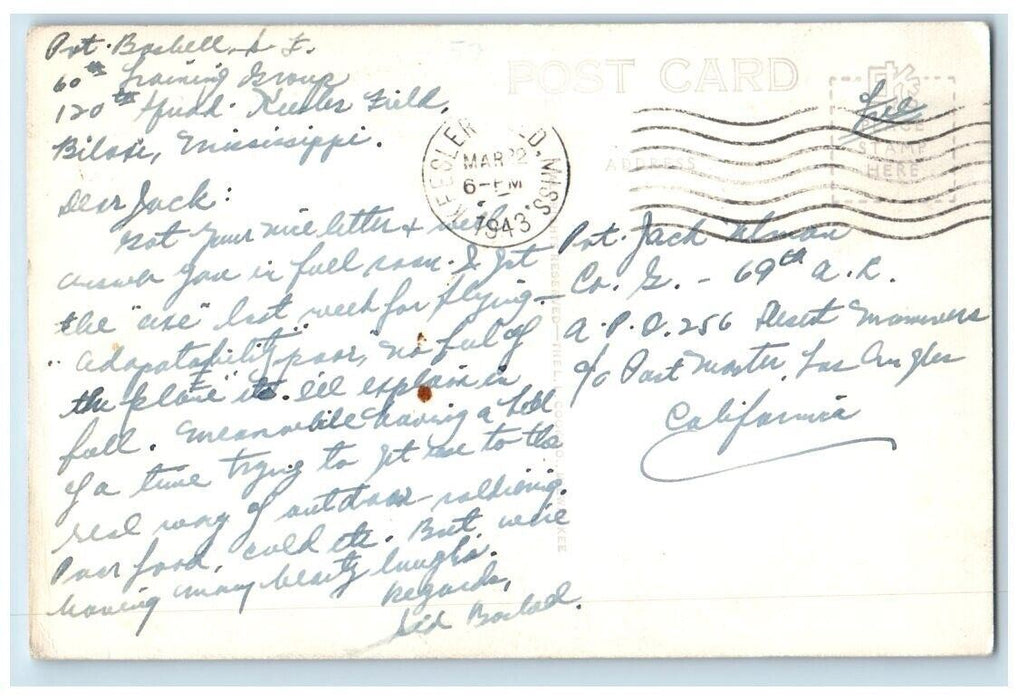 Pvt. Boshell, S. F.
60th Training Group
120th Squad. Keesler Field,
Biloxi, Mississippi.
POST CARD
Free
PLACE
STAMP
HERE
ADDRESS
KEESLER FIELD, MISS.
MAR 22
6-PM
1943
Dear Jack:
Got your nice letter & will
answer you in full soon. I got
the "axe" last week for flying—
"adapatability poor, no feel of
the plane" etc. I'll explain in
full. Meanwhile having a hell
of a time trying to get use to the
real way of outdoor soldiering.
Poor food, cold etc. But, we're
having many hearty laughs.
Regards,
Sid
Pvt. Jack Ulman
Co. G. - 69th A. R.
A.P.O. 256 Desert Maneuvers
c/o Post Master, Los Angeles
California